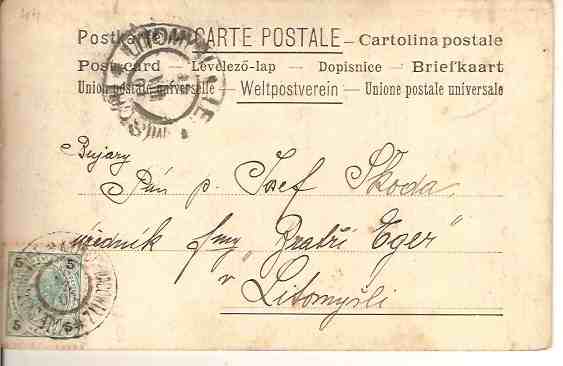 Postkarte — CARTE POSTALE — Cartolina postale
Post-card — Levelező-lap — Dopisnice — Briefkaart
Union postale universelle — Weltpostverein — Unione postale universale
Pán p. Josef Škoda
úředník fmy „Bratří Eger"
v Litomyšli
5 5
5 5